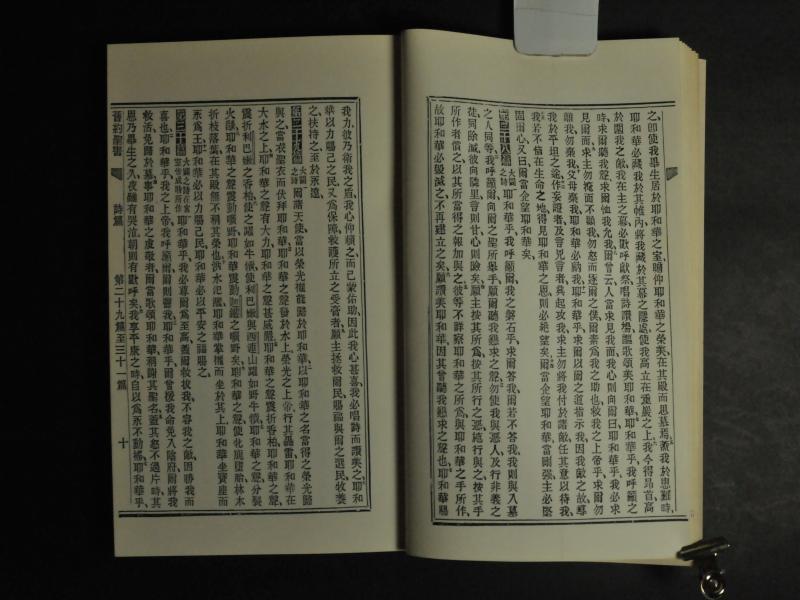 之、卽使我畢生居於耶和華之室、瞻仰耶和華之榮美、在其殿而思慕焉、蓋我於患難時、
耶和華必藏我於其帷內、將我藏於其幕之隱處、使我高立在磐嚴之上、我今得昂首高
於圍我之敵、我在主之幕、必歡呼獻祭、唱詩讚揚、謳歌頌美耶和華、耶和華乎、我呼籲
時、求爾聽我聲、求爾恤我、允我、爾曾云、人當求見我面、我心則向爾曰、耶和華乎、我必求
見爾面、求主勿掩面不顧我、勿怒而逐爾之僕、爾素為我之助也、救我之上帝乎、求爾勿
離我、勿棄我、父母棄我、耶和華必納我、耶和華乎、求爾以爾之道指示我、因我敵之故、導
我於平坦之途、作妄證者及
我若不信在生命之地、得見耶和華之恩、則必絕望矣、爾當企望耶和華、當剛强、主必堅
固爾心、又曰、爾當企望耶和華矣、
第二十八篇 大闢之詩 耶和華乎、我呼籲爾、我之磐石乎、求爾答我、爾若不答我、我則與入墓
之人同等、我呼籲爾、向爾之聖所舉手、願爾聽我懇求之聲、勿使我與惡人及行非義之
徒同除滅、彼向隣里
所作者償之、以其所當得之報加與之、彼等不詳察耶和華之所為與耶和華之手所作、
故耶和華必毀滅之、不再建立之矣、願讚美耶和華、因其曾聽我懇求之聲也、耶和華賜
我力、彼乃衛我之盾、我心仰賴之、而己蒙佑助、因此我心甚喜、我必唱詩而讚美之、耶和
華以力賜己之民、又為保障、救護所立之受膏者、願主拯救爾民、賜福與爾之選民、牧養
之、扶持之、至於永遠、
第二十九篇 大闢之詩 爾諸天使、當以榮光權能歸於耶和華、以耶和華之名當得之榮光歸
與之、當衣聖衣而伏拜耶和華、耶和華之聲發於水上、榮光之上帝行其轟雷、耶和華在
大水之上、耶和華之聲有大力、耶和華之聲甚威嚴、耶和華之聲震折香柏、耶和華之聲
震折利巴嫩之香柏、使之躍如牛犢、使利巴嫩與西連山躍如野牛犢、耶和華之聲分裂
火燄、耶和華之聲震動曠野、耶和華震動迦鐵之曠野矣、耶和華之聲使牝鹿墮胎、林木
折枝落葉、在其殿無不稱其榮也、洪水汜濫、耶和華掌權、而坐於其上、耶和華坐寶座而
永為王、耶和華必以力賜己民、耶和華必以平安之福賜之、
第三十篇 耶和華乎、我必尊爾為至高、蓋爾救拔我、不容我之敵因勝我而
喜也、耶和華、我之上帝乎、我呼籲爾、則爾醫我、耶和華乎、爾曾援我命免入陰府、爾將我
救活、免罹於墓事、耶和華之虔敬者、爾當歌頌耶和華、稱謝其聖名、蓋其怒不過片時、其
恩乃畢生之久、夜雖有哭泣、朝則有歡呼矣、我享平康之時、自以為永不動搖、耶和華乎、
舊約聖書 詩篇 第二十九篇至三十一篇 十